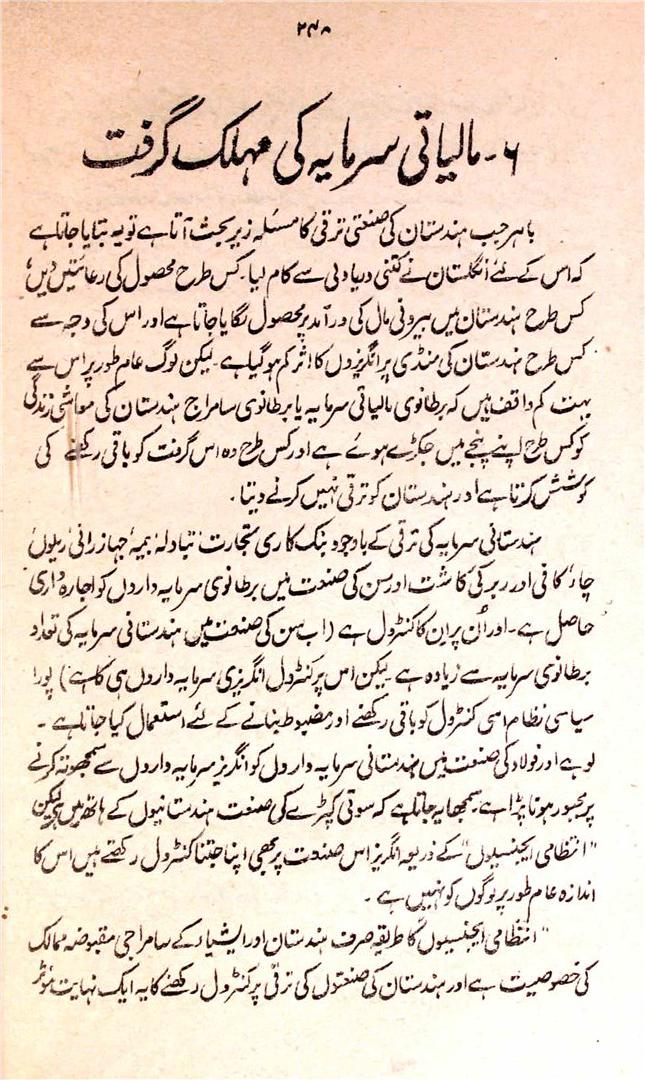 ۲۴۸
۶۔ مالیاتی سرمایہ کی مہلک گرفت
باہر جب ہندستان کی صنعتی ترقی کا مسئلہ زیر بحث آتا ہے تو یہ بتایا جاتا ہے
کہ اس کے لئے انگلستان نے کتنی دریا دلی سے کام لیا۔ کس طرح محصول کی رعائتیں دیں،
کس طرح ہندستان میں بیرونی مال کی درآمد پر محصول لگایا جاتا ہے اور اس کی وجہ سے
کس طرح ہندستان کی منڈی پر انگریزوں کا اثر کم ہو گیا ہے۔ لیکن لوگ عام طور پر اس سے
بہت کم واقف ہیں کہ برطانوی مالیاتی سرمایہ یا برطانوی سامراج ہندستان کی معاشی زندگی
کو کس طرح اپنے پنجے میں جکڑے ہوئے ہے اور کس طرح وہ اس گرفت کو باقی رکھنے کی
کوشش کرتا ہے اور ہندستان کو ترقی نہیں کرنے دیتا۔
ہندستانی سرمایہ کی ترقی کے باوجود بنک کاری، تجارت، تبادلہ، بیمہ، جہاز رانی، ریلوں،
چاء، کافی اور ربر کی کاشت اور سن کی صنعت میں برطانوی سرمایہ داروں کو اجارہ داری
حاصل ہے۔ اور اُن پر اِن کا کنٹرول ہے (اب سن کی صنعت میں ہندستانی سرمایہ کی تعداد
برطانوی سرمایہ سے زیادہ ہے۔ لیکن اس پر کنٹرول انگریزی سرمایہ داروں ہی کا ہے) پورا
سیاسی نظام اسی کنٹرول کو باقی رکھنے اور مضبوط بنانے کے لئے استعمال کیا جاتا ہے۔
لوہے اور فولاد کی صنعت میں ہندستانی سرمایہ داروں کو انگریز سرمایہ داروں سے سمجھوتہ کرنے
پر مجبور ہونا پڑا ہے۔ سمجھا یہ جاتا ہے کہ سوتی کپڑے کی صنعت ہندستانیوں کے ہاتھ میں ہے لیکن
"انتظامی ایجنسیوں" کے ذریعہ انگریز اس صنعت پر بھی اپنا جتنا کنٹرول رکھتے ہیں اس کا
اندازہ عام طور پر لوگوں کو نہیں ہے۔
"انتظامی ایجنسیوں" کا طریقہ صرف ہندستان اور ایشیاء کے سامراجی مقبوضہ ممالک
کی خصوصیت ہے اور ہندستان کی صنعتوں کی ترقی پر کنٹرول رکھنے کا یہ ایک نہایت مؤثر